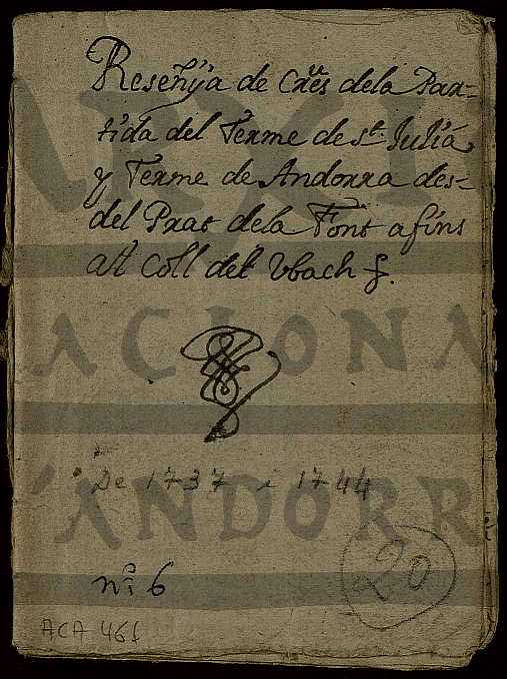 Reseñÿa de Creus dela Par-
tida del Terme de St. Juliá,
y Terme de Andorra des-
del Prat dela Font afins
al Coll del Vbach f.
De 1737 i 1744
n.º 6
20
ACA 461
ARXIU
NACIONAL
D'ANDORRA